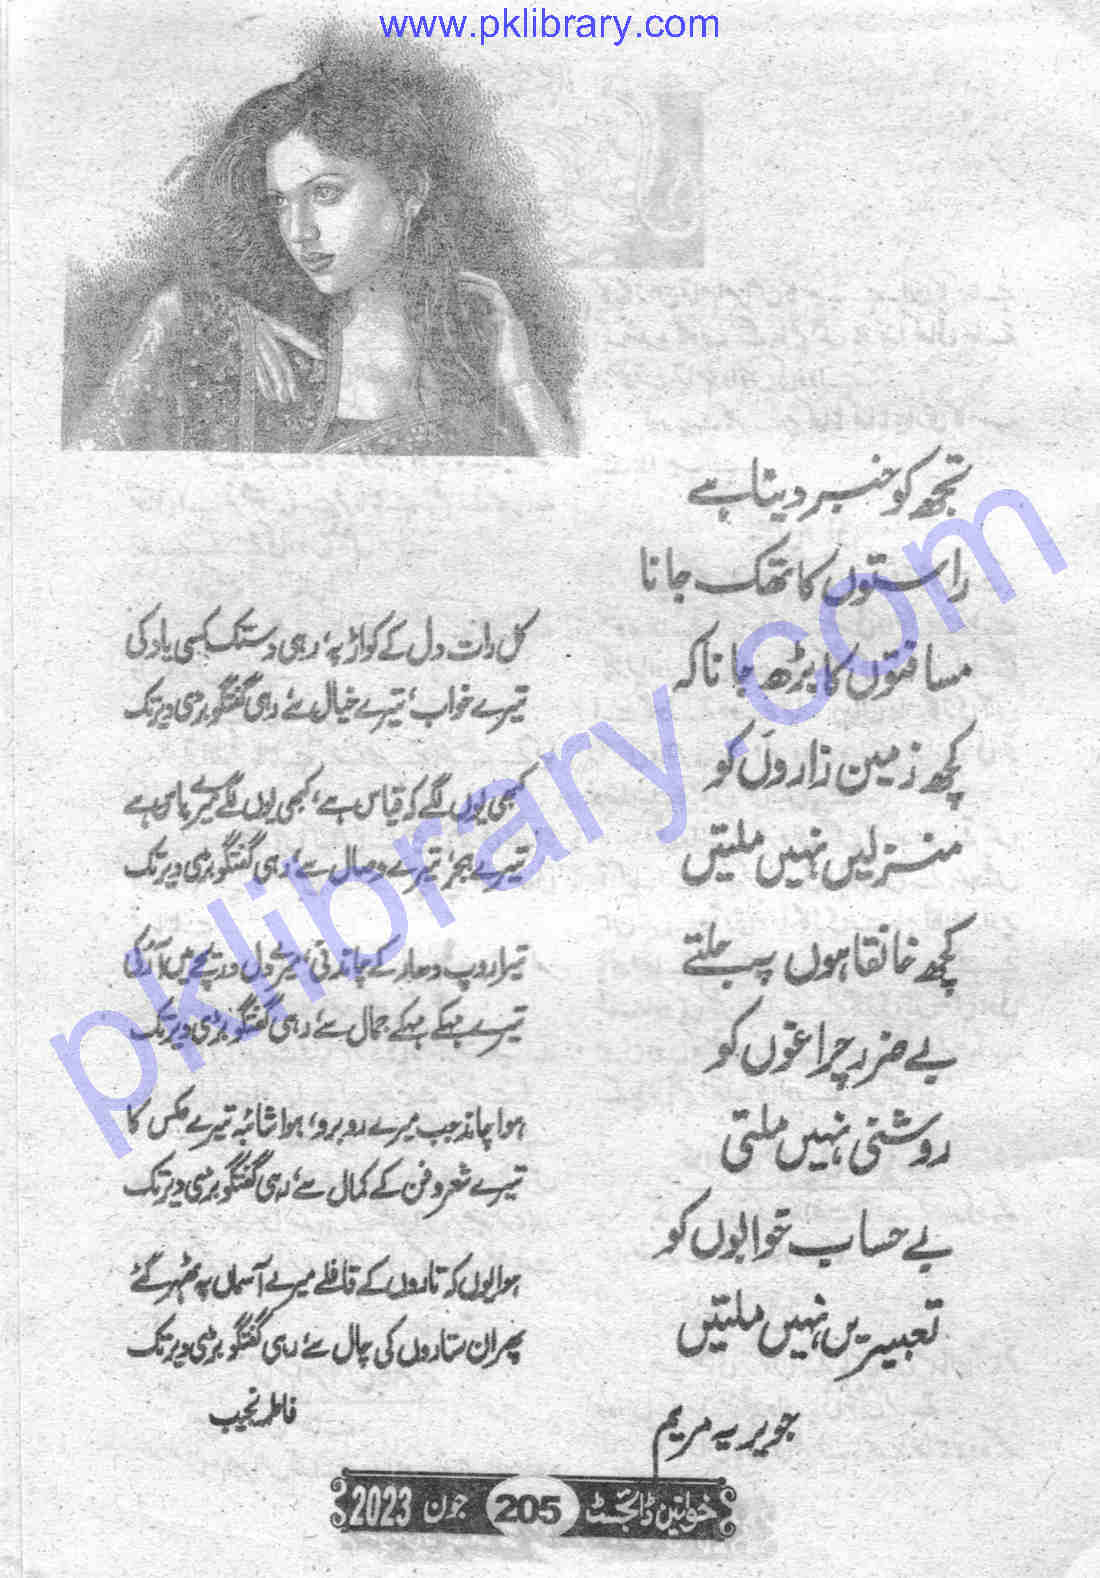 www.pklibrary.com
تجھ کو خبر دینا ہے
راستوں کا تھک جانا
مسافتوں کا بڑھ جانا کہ
کچھ زمین زاروں کو
منزلیں نہیں ملتیں
کچھ خانقاہوں پہ جلتے
بے ضرر چراغوں کو
روشنی نہیں ملتی
بے حساب خوابوں کو
تعبیریں نہیں ملتیں
جویریہ مریم
کل رات دل کے کواڑ پہ، رہی دستک کسی یاد کی
تیرے خواب، تیرے خیال سے، رہی گفتگو بڑی دیر تک
کبھی یوں لگے کہ قیاس ہے، کبھی یوں لگے میرے پاس ہے
تیرے ہجر، تیرے وصال سے، رہی گفتگو بڑی دیر تک
تیرا روپ دھار کے چاندنی، میرے دل دریچے میں آ رکی
تیرے مہکے مہکے جمال سے، رہی گفتگو بڑی دیر تک
ہوا چاند جب میرے روبرو، ہوا شائبہ تیرے عکس کا
تیرے شعر و فن کے کمال سے، رہی گفتگو بڑی دیر تک
ہوا یوں کہ تاروں کے قافلے میرے آسماں پہ ٹھہر گئے
پھر ان ستاروں کی چال سے، رہی گفتگو بڑی دیر تک
فاطمہ نجیب
خواتین ڈائجسٹ 205 جون 2023
pklibrary.com